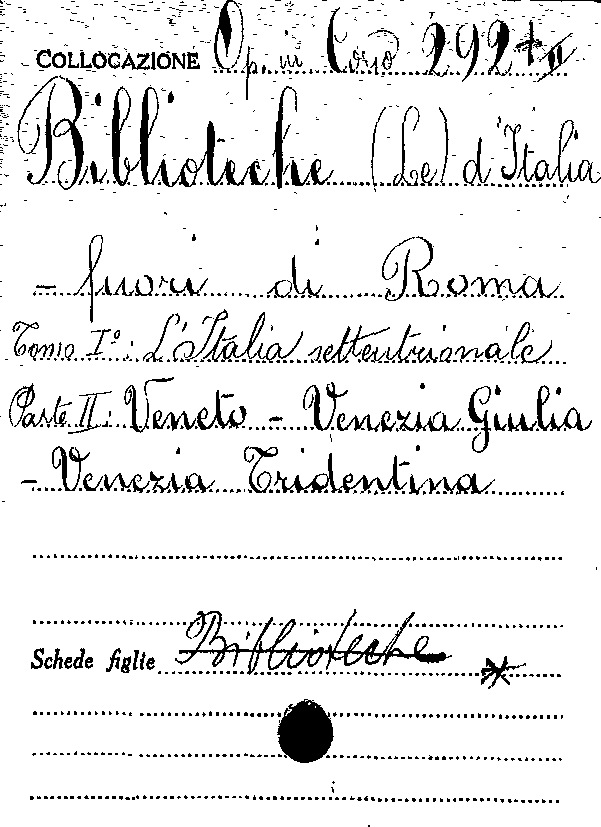 COLLOCAZIONE Op. in Corso 292 + II
Biblioteche (Le) d'Italia
- fuori di Roma
Tomo Iº: L'Italia settentrionale
Parte II: Veneto - Venezia Giulia
- Venezia Tridentina
Schede figlie Biblioteche *